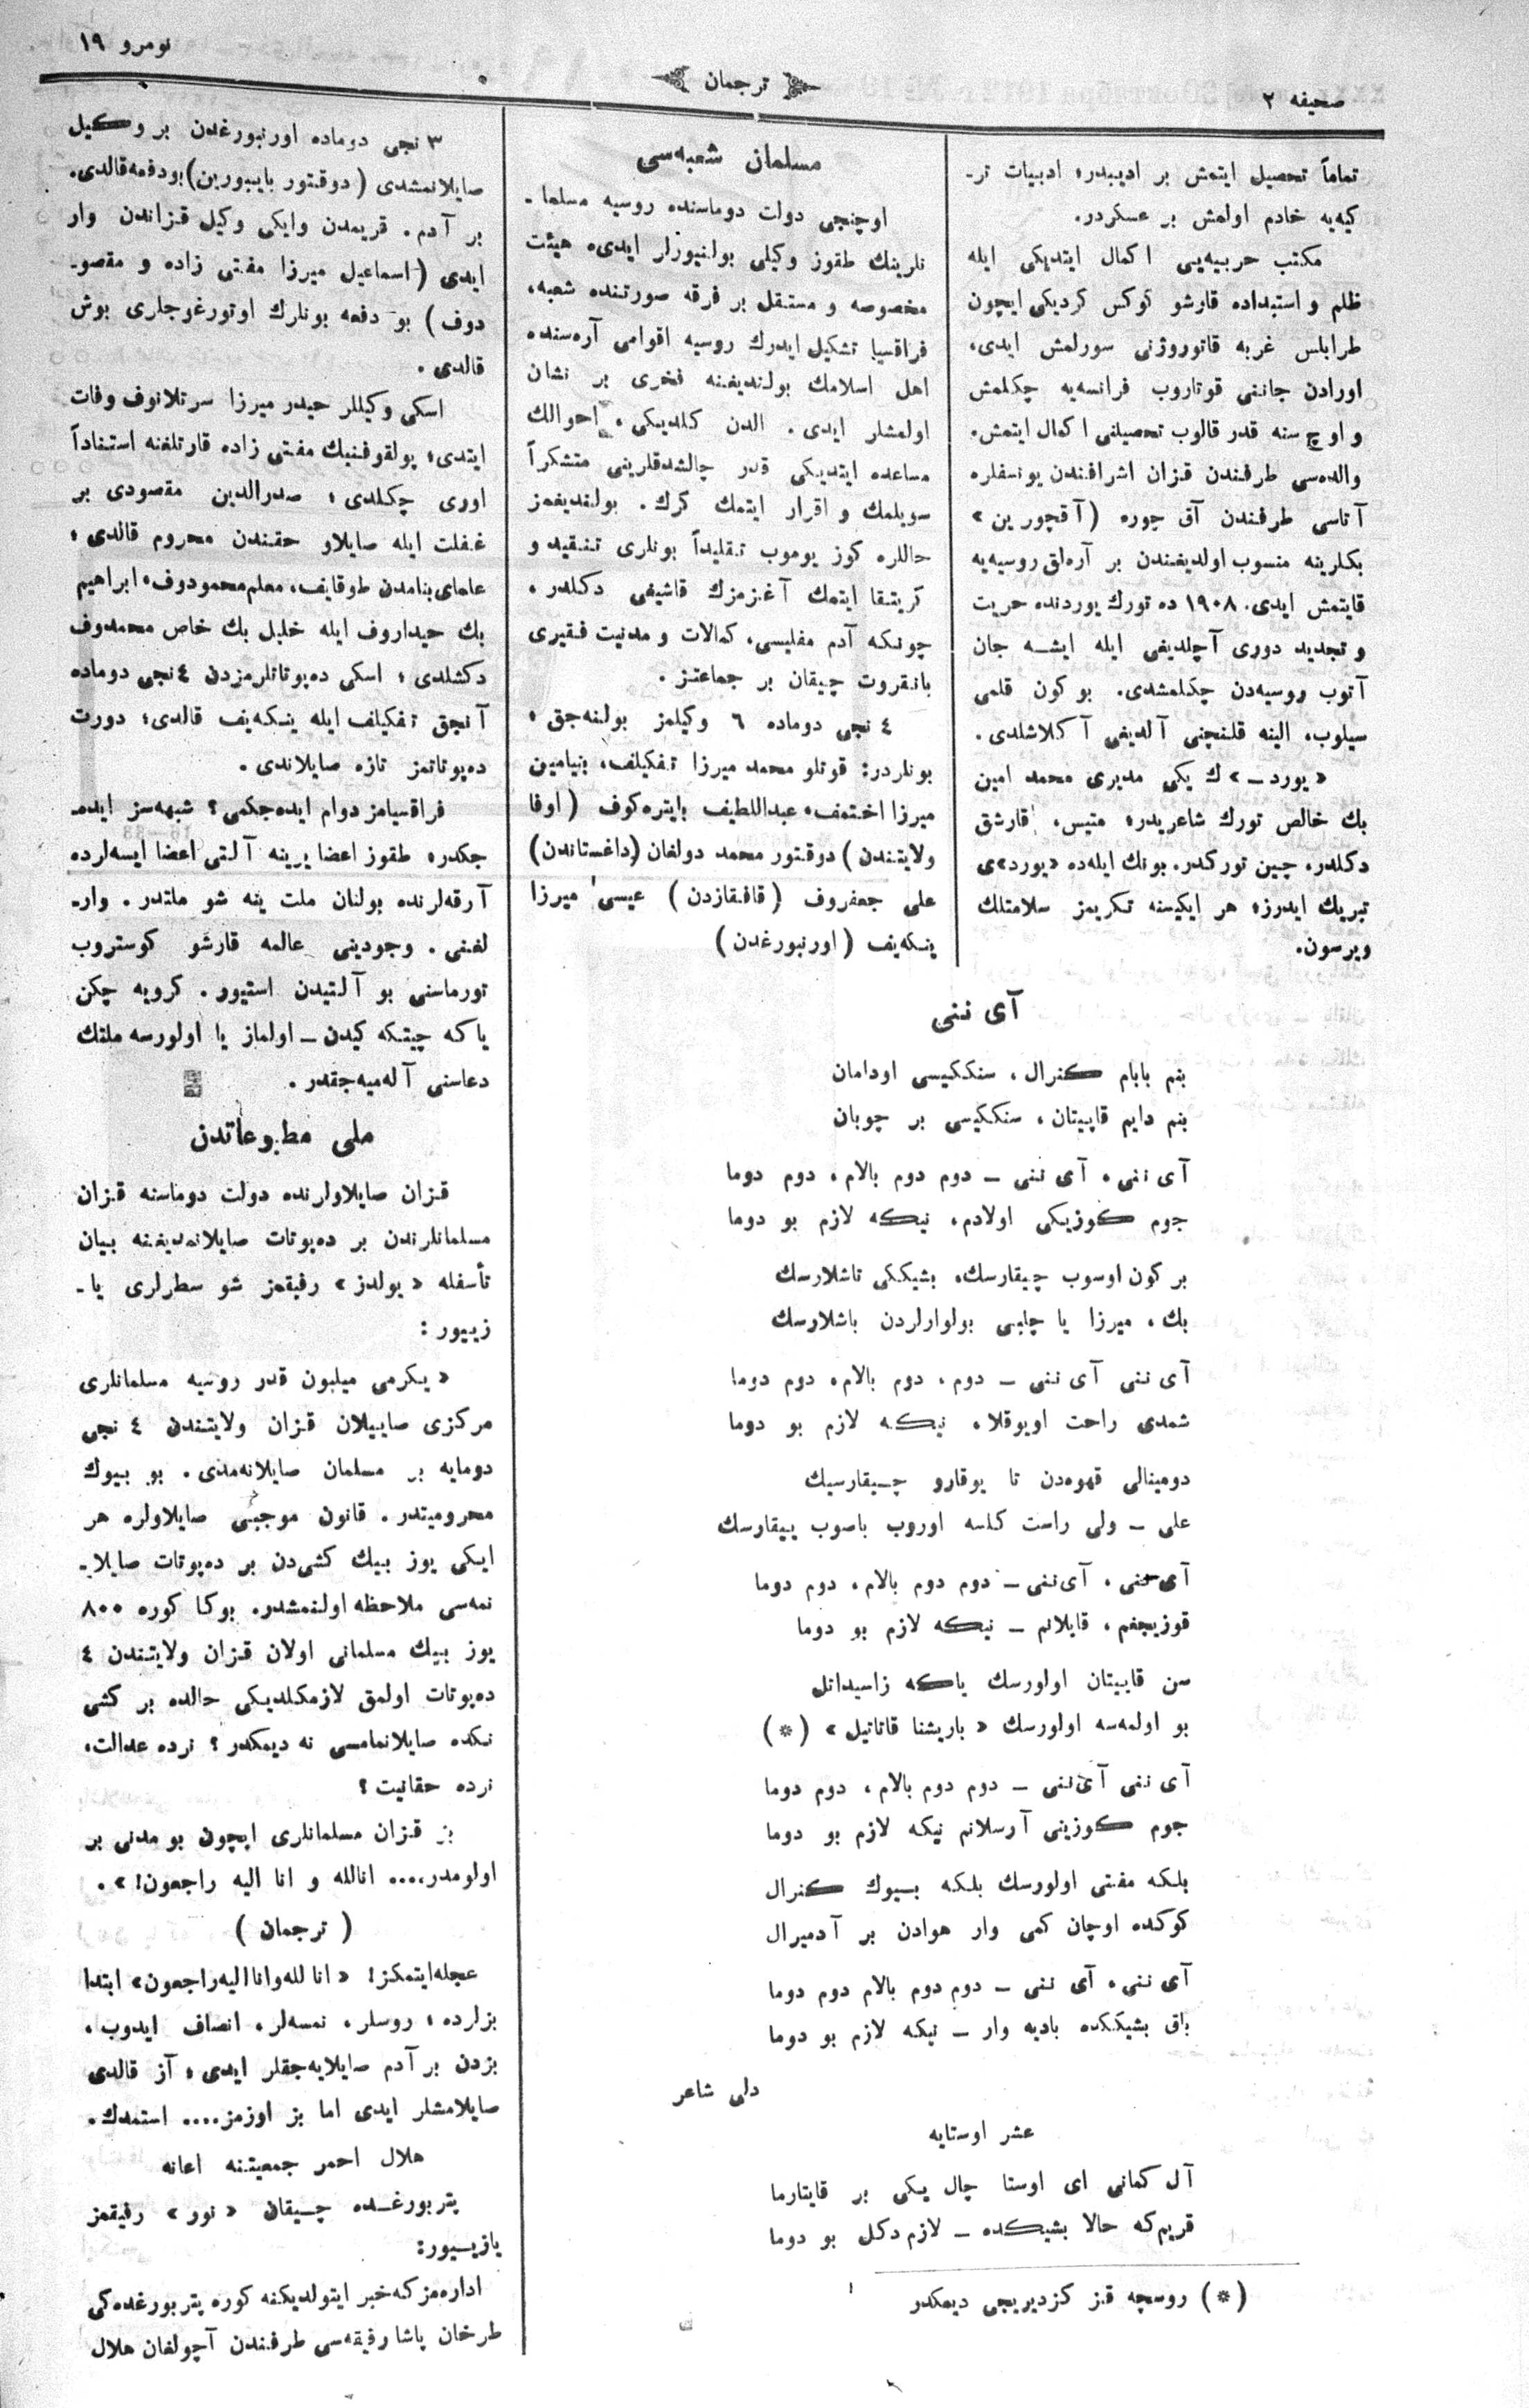 صحیفه ٢
ترجمان
نومرو ١٩
تماماً تحصیل ایتمش بر ادیبدر؛ ادبیات تر-
کیه‌یه خادم اولمش بر عسکردر.
مکتب حربیه‌یی اکمال ایتدیکی ایله
ظلم و استبداده قارشو کوکس کردیکی ایچون
طرابلس غربه قاتوروژنی سورلمش ایدی،
اورادن جاننی قوتاروب فرانسه‌یه چکلمش
و اوچ سنه قدر قالوب تحصیلنی اکمال ایتمش.
والده‌سی طرفندن قزان اشرافندن یونسفلره
آتاسی طرفندن آق چوره (آقچورین»
بکلرینه منسوب اولدیغندن بر آره‌لق روسیه‌یه
قایتمش ایدی. ١٩٠٨ ده تورك یوردنده حریت
و تجدید دوری آچلدیغی ایله ایشه جان
آتوب روسیه‌دن چکلمشدی. بو کون قلمی
سیلوب، الینه قلنچنی آلدیغی آکلاشلدی.
«یورد—»ك یکی مدیری محمد امین
بك خالص تورك شاعریدر؛ متیس، قارشق
دکلدر، چین تورکدر. بونك ایله‌ده «یورد»ی
تبریك ایدرز؛ هر ایکیسنه تکریمز سلامتلك
ویرسون.
مسلمان شعبه‌سی
اوچنجی دولت دوماسنده روسیه مسلما-
نلرینك طقوز وکیلی بولنیورلر ایدی، هیئت
مخصوصه و مستقل بر فرقه صورتنده شعبه،
فراقسیا تشکیل ایدرك روسیه اقوامی آره‌سنده
اهل اسلامك بولندیغنه فخری بر نشان
اولمشلر ایدی. الدن کلدیکی، احوالك
مساعده ایتدیکی قدر چالشدقلرینی متشکراً
سویلمك و اقرار ایتمك کرك. بولندیغمز
حاللره کوز یوموب تقلیداً بونلری تنقید و
کریتقا ایتمك آغزمزك قاشیغی دکلدر،
چونکه آدم مفلیسی، کمالات و مدنیت فقیری
بانقروت چیقان بر جماعتز.
٤ نجی دوماده ٦ وکیلمز بولنه‌جق؛
بونلردر: قوتلو محمد میرزا تفکیلف، بنیامین
میرزا اختمف، عبداللطیف بایتره‌کوف (اوفا
ولایتندن) دوقتور محمد دولغان (داغستاندن)
علی جعفروف (قافقازدن) عیسی میرزا
ینکه‌یف (اورنبورغدن)
آی ننی
بنم بابام کنرال، سنککیسی اودامان
بنم دایم قاپیتان، سنککیسی بر چوبان
آی ننی، آی ننی — دوم دوم بالام، دوم دوما
جوم کوزیکی اولادم، نیکه لازم بو دوما
بر کون اوسوب چیقارسك، بشیککی تاشلارسك
بك، میرزا یا چلبی بولوارلردن باشلارسك
آی ننی آی ننی — دوم، دوم بالام، دوم دوما
شمدی راحت اویوقلا، نیکه لازم بو دوما
دومینالی قهوه‌دن تا یوقارو چیقارسیك
علی — ولی راست کلسه اوروب باصوب ییقارسك
آی ننی، آی ننی — دوم دوم بالام، دوم دوما
قوزیجغم، قاپلانم — نیکه لازم بو دوما
سن قاپیتان اولورسك یاکه زاسیداتل
بو اولمه‌سه اولورسك «باریشنا قاتاتیل» (*)
آی ننی آی ننی — دوم دوم بالام، دوم دوما
جوم کوزینی آرسلانم نیکه لازم بو دوما
بلکه مفتی اولورسك بلکه بیوك کنرال
کوکده اوچان کمی وار هوادن بر آدمیرال
آی ننی، آی ننی — دوم دوم بالام دوم دوما
باق بشیککده بادیه وار — نیکه لازم بو دوما
دلی شاعر
عشر اوستایه
آل کمانی ای اوستا چال یکی بر قایتارما
قریم‌که حالا بشیکده — لازم دکل بو دوما
(*) روسچه قز کزدیریجی دیمکدر
٣ نجی دوماده اورنبورغدن بر وکیل
صایلانمشدی (دوقتور بایبورین) بودفعه‌قالدی.
بر آدم. قریمدن وایکی وکیل قزاندن وار
ایدی (اسماعیل میرزا مفتی زاده و مقصو-
دوف) بو دفعه بونلرك اوتورغوجلری بوش
قالدی.
اسکی وکیللر حیدر میرزا سرتلانوف وفات
ایتدی؛ پولقوفنیك مفتی زاده قارتلغنه استناداً
اوری چکلدی؛ صدرالدین مقصودی بر
غفلت ایله صایلاو حقندن محروم قالدی؛
علمای بنامدن طوقایف، معلم محمودوف، ابراهیم
بك حیداروف ایله خلیل بك خاص محمدوف
دکشلدی؛ اسکی ده‌پوتاتلرمزدن ٤ نجی دوماده
آنجق تفکیلف ایله ینکه‌یف قالدی؛ دورت
ده‌پوتاتمز تازه صایلاندی.
فراقسیامز دوام ایده‌جکمی؟ شبهه‌سز ایده-
جکدر؛ طقوز اعضا یرینه آلتی اعضا ایسه‌لرده
آرقه‌لرنده بولنان ملت ینه شو ملتدر. وار-
لغنی. وجودینی عالمه قارشو کوستروب
تورماسنی بو آلتیدن استیور. کرویه چکن
یاکه چیتکه کیدن — اولماز یا اولورسه ملتك
دعاسنی آله‌میه‌جقدر.
ملی مطبوعاتدن
قزان صایلاولرنده دولت دوماسنه قزان
مسلمانلرندن بر ده‌پوتات صایلانمدیغنه بیان
تأسفله «یولدز» رفیقمز شو سطرلری یا-
زییور:
«یکرمی میلیون قدر روسیه مسلمانلری
مرکزی صاییلان قزان ولایتندن ٤ نجی
دومایه بر مسلمان صایلانه‌مدی. بو بیوك
محرومیتدر. قانون موجبی صایلاولره هر
ایکی یوز بیك کشی‌دن بر ده‌پوتات صایلا-
نمه‌سی ملاحظه اولنمشدر. بوکا کوره ٨٠٠
یوز بیك مسلمانی اولان قزان ولایتندن ٤
ده‌پوتات اولمق لازمکلدیکی حالده بر کشی
نکده صایلانمامسی نه دیمکدر؟ نرده عدالت،
نرده حقانیت؟
بز قزان مسلمانلری ایچون بو مدنی بر
اولومدر،... انالله و انا الیه راجعون!».
(ترجمان)
عجله‌ایتمکز! «انا لله وانا الیه راجعون» ابتدا
بزلرده؛ روسلر، نمسه‌لر، انصاف ایدوب،
بزدن بر آدم صایلایه‌جقلر ایدی؛ آز قالدی
صایلامشلر ایدی اما بز اوزمز.... استمدك.
هلال احمر جمعیتنه اعانه
پتربورغده چیقان «نور» رفیقمز
یازییور:
اداره‌مزکه خبر ایتولدیکنه کوره پتربورغده‌کی
طرخان پاشا رفیقه‌سی طرفندن آچولغان هلال